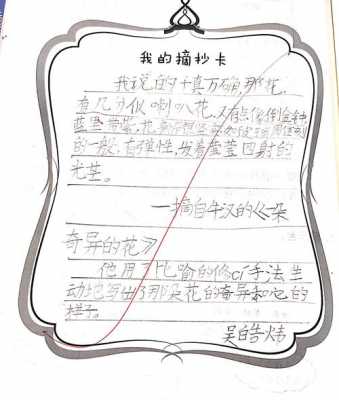 我的摘抄卡
我说的千真万确,那花
有几分似喇叭花,又有点像倒金钟
蓝莹莹
的一般,有弹性,发着莹莹四射的
光芒。
—摘自牛汉的《一朵
奇异的花》
他用了比喻的修ci手法生
动地写出了那朵花的奇异和它的
样子。
吴皓炜